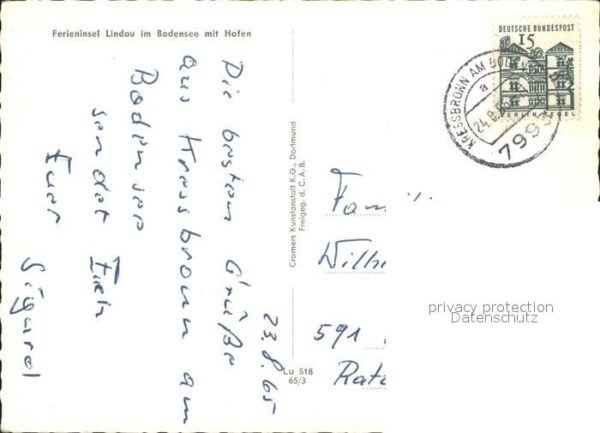 Ferieninsel Lindau im Bodensee mit Hafen
23.8.65
Die besten Grüße
aus Kressbronn am
Bodensee
sendet Euch
Euer Sigurd
Cramers Kunstanstalt K.G., Dortmund
Freigeg. d. C.A.B.
Lu 518
65/3
DEUTSCHE BUNDESPOST
15
BERLIN TEGEL
KRESSBRONN AM BODENSEE
a
24.8.
7993
Fam
Wilh
591
Rat
privacy protection
Datenschutz